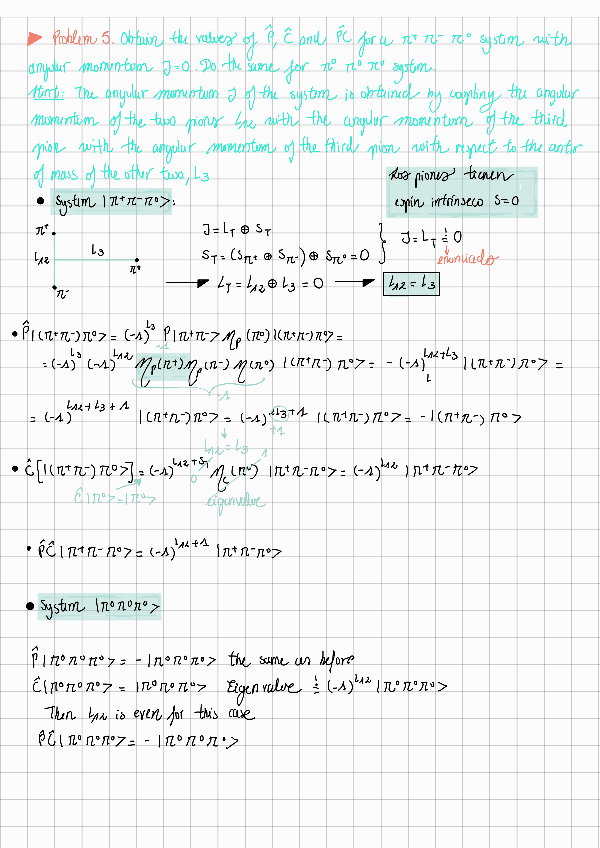 ▶ Problem 5. Obtain the values of P̂, Ĉ and P̂C for a π+ π- π° system with
angular momentum J=0. Do the same for π° π° π° system.
Hint: The angular momentum J of the system is obtained by coupling the angular
momentum of the two pions L12 with the angular momentum of the third
pion with the angular momentum of the third pion with respect to the center
of mass of the other two, L3
Los piones tienen
espín intrínseco S=0
• System |π+π-π°>:
π+
L12
L3
π°
π-
J = LT ⊕ ST
ST = (Sπ+ ⊕ Sπ-) ⊕ Sπ° = 0
} J = LT ≟ 0
enunciado
→ LT = L12 ⊕ L3 = 0 → L12 = L3
• P̂|(π+π-)π°> = (-1)^L3 P|π+π-> ηp(π°)|(π+π-)π°> =
-1
= (-1)^L3 (-1)^L12 ηp(π+)ηp(π-) η(π°) |(π+π-)π°> = - (-1)^L12+L3 |(π+π-)π°> =
-1
= (-1)^L12+L3+1 |(π+π-)π°> = (-1)^2L3+1 |(π+π-)π°> = -|(π+π-)π°>
+1
L12 = L3
• Ĉ[|(π+π-)π°>] = (-1)^L12+ST ηc(π°) |π+π-π°> = (-1)^L12 |π+π-π°>
0
1
Ĉ|π°>=|π°>
eigenvalue
• P̂Ĉ|π+π-π°> = (-1)^L12+1 |π+π-π°>
• System |π°π°π°>
P̂|π°π°π°> = -|π°π°π°> the same as before
Ĉ|π°π°π°> = |π°π°π°> Eigenvalue ≟ (-1)^L12 |π°π°π°>
Then L12 is even for this case
P̂Ĉ|π°π°π°> = -|π°π°π°>